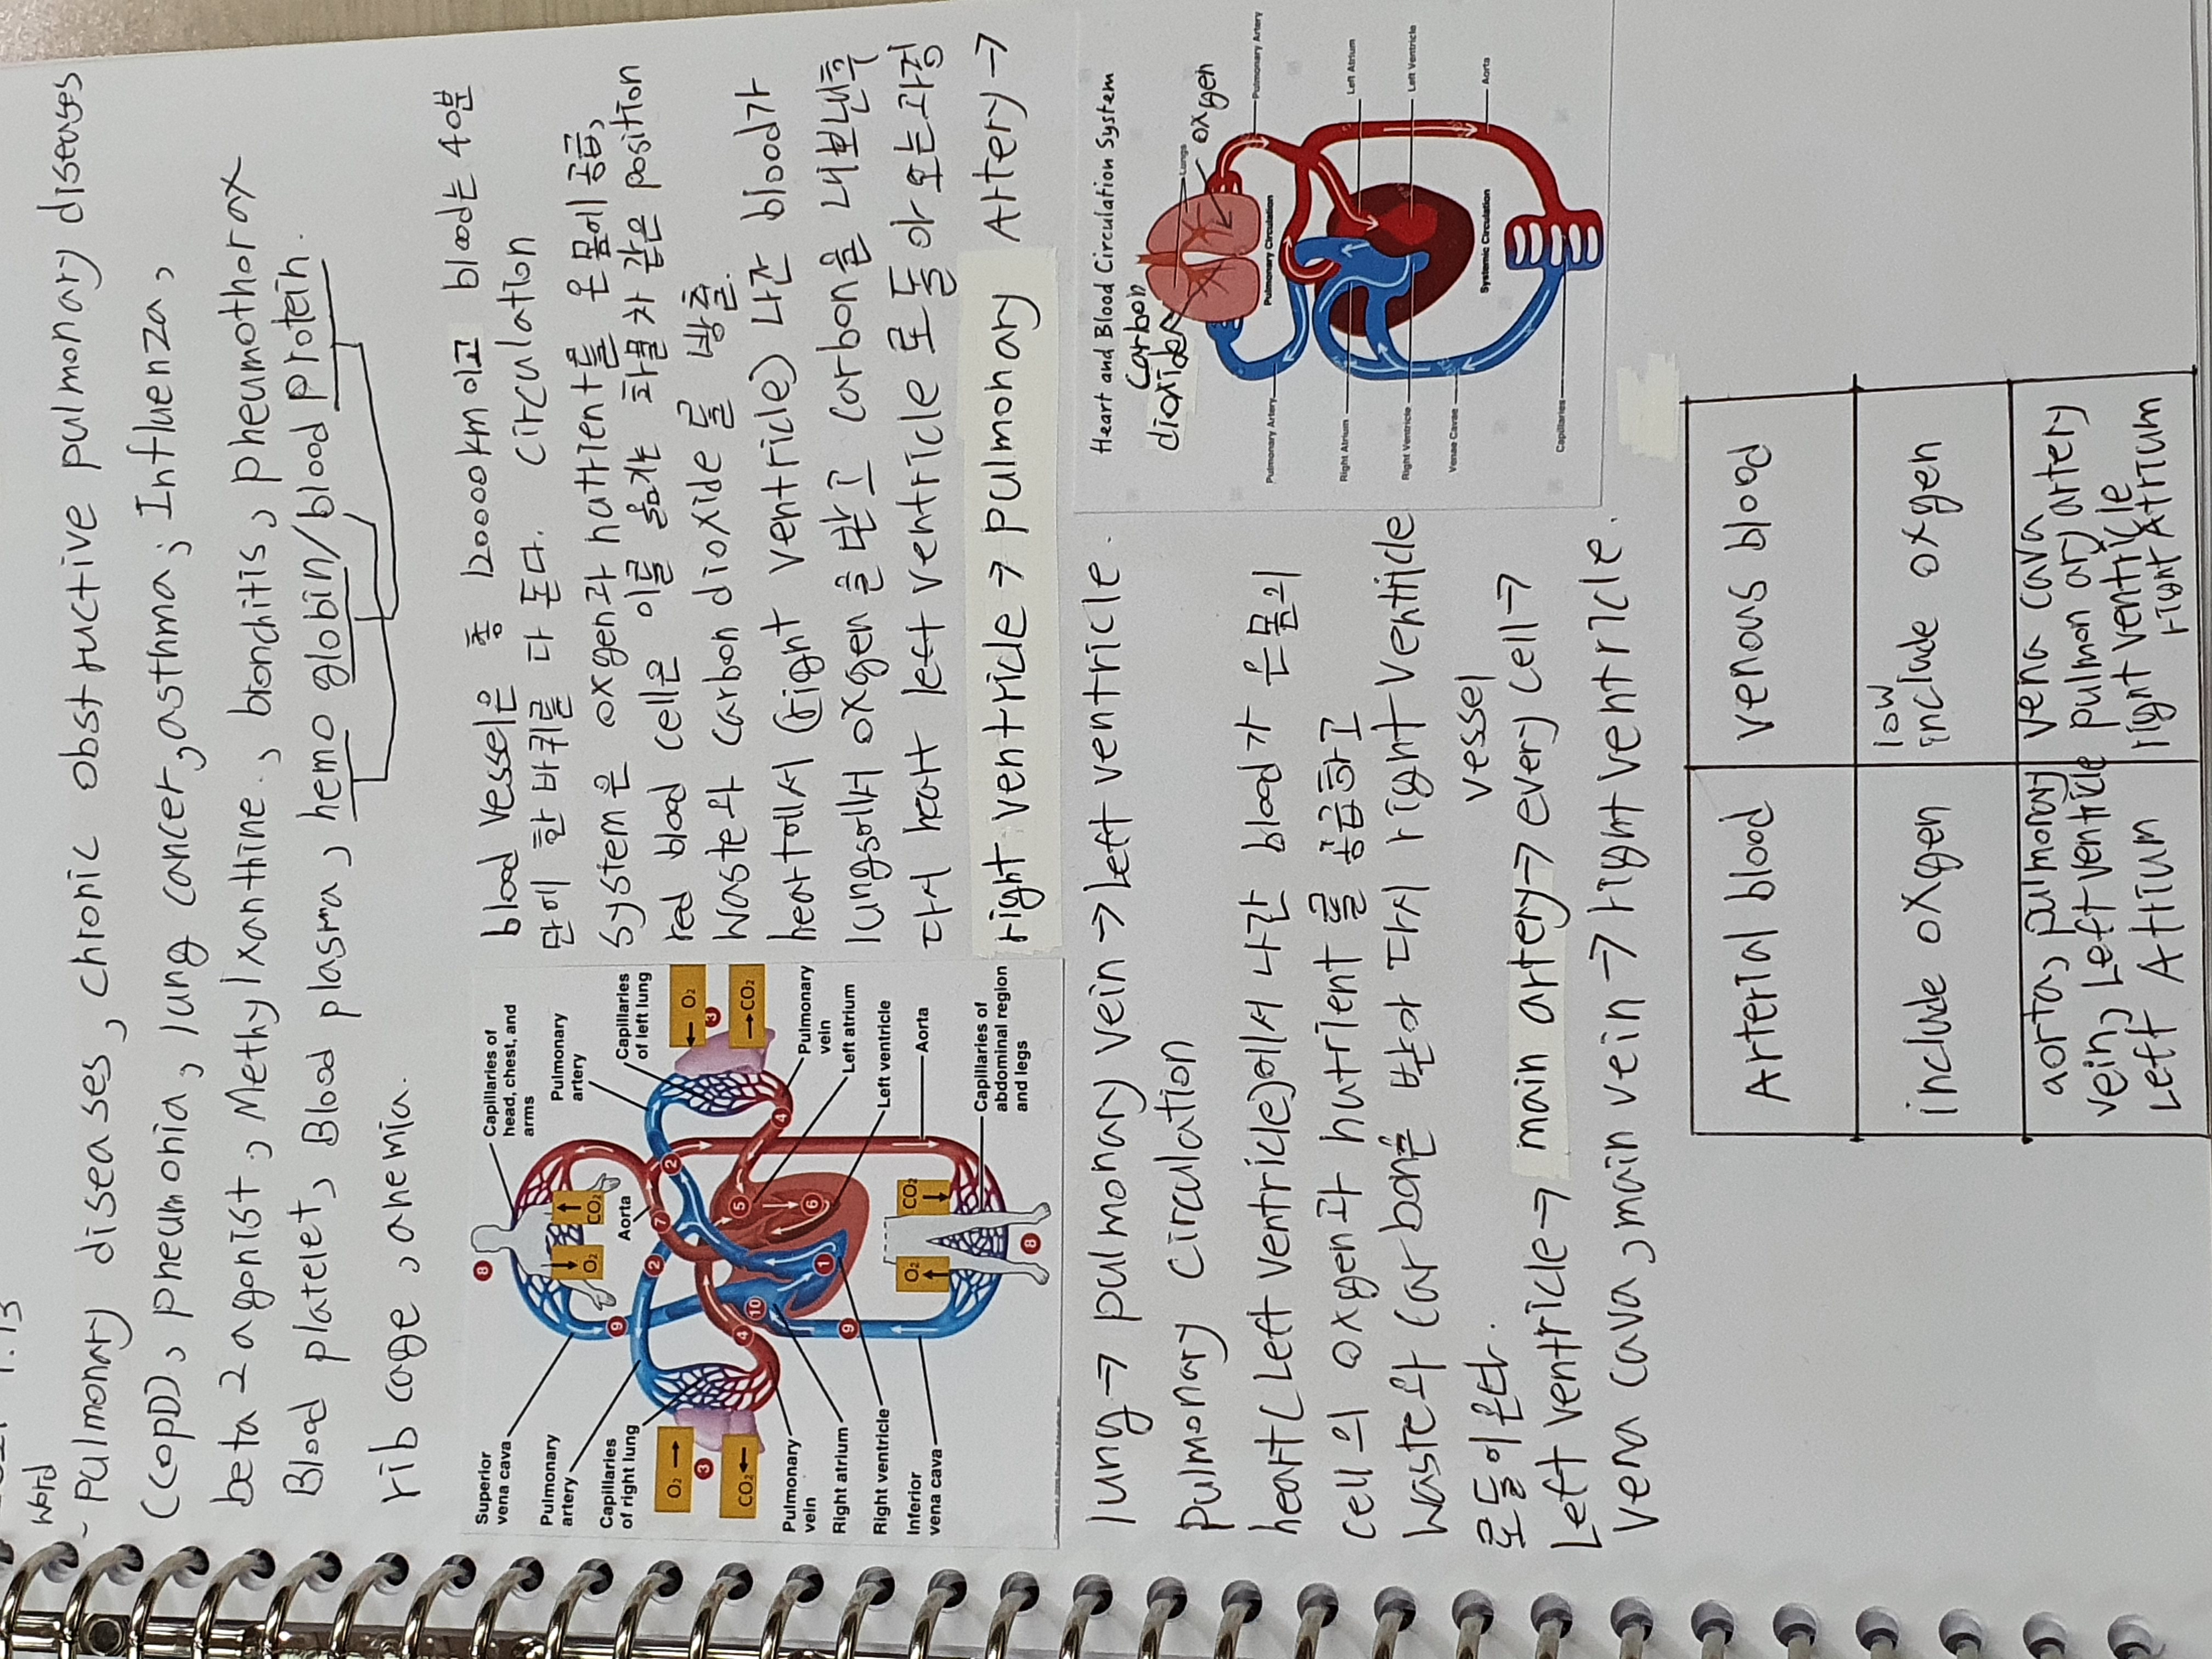 word
~ pulmonary diseases, chronic obstructive pulmonary diseases
(COPD), pneumonia, lung cancer, asthma, Influenza,
beta 2 agonist, Methylxanthine., bronchitis, pneumothorax
Blood platelet, Blood plasma, hemo globin/blood protein.
rib cage, anemia.
Superior vena cava
Pulmonary artery
Capillaries of right lung
O₂
3
CO₂
Pulmonary vein
Right atrium
Right ventricle
Inferior vena cava
8
Capillaries of head, chest, and arms
O₂
CO₂
Aorta
Pulmonary artery
Capillaries of left lung
O₂
3
CO₂
Pulmonary vein
Left atrium
Left ventricle
Aorta
Capillaries of abdominal region and legs
9
2
4
10
9
1
7
2
5
6
4
O₂
CO₂
8
blood vessel은 총 120000km이고 blood는 40분
만에 한 바퀴를 다 돈다. circulation
system은 oxgen과 nutrient를 온몸에 공급,
red blood cell은 이를 옮기는 화물차 같은 position
waste와 carbon dioxide를 방출.
heart에서 (right ventricle) 나간 blood가
lungs에서 oxgen을 받고 carbon을 내보낸후
다시 heart left ventricle로 돌아오는과정
right ventricle → pulmonary Artery →
lung → pulmonary vein → left ventricle.
Heart and Blood Circulation System
carbon dioxide
oxgen
Lungs
Pulmonary Artery
Pulmonary Circulation
Pulmonary Artery
Left Atrium
Right Atrium
Left Ventricle
Right Ventricle
Venae Cavae
Systemic Circulation
Aorta
Capillaries
pulmonary circulation
heart(Left ventricle)에서 나간 blood가 온몸의
cell의 oxgen과 nutrient를 공급하고
waste와 carbon을 받아 다시 right ventricle
로 돌아온다.
vessel
Left ventricle → main artery → every cell →
vena cava, main vein → right ventricle.
Arterial blood venous blood
include oxgen low include oxgen
aorta, pulmonary vein, Left ventricle Left Atrium
vena cava pulmonary artery right ventricle right Atrium